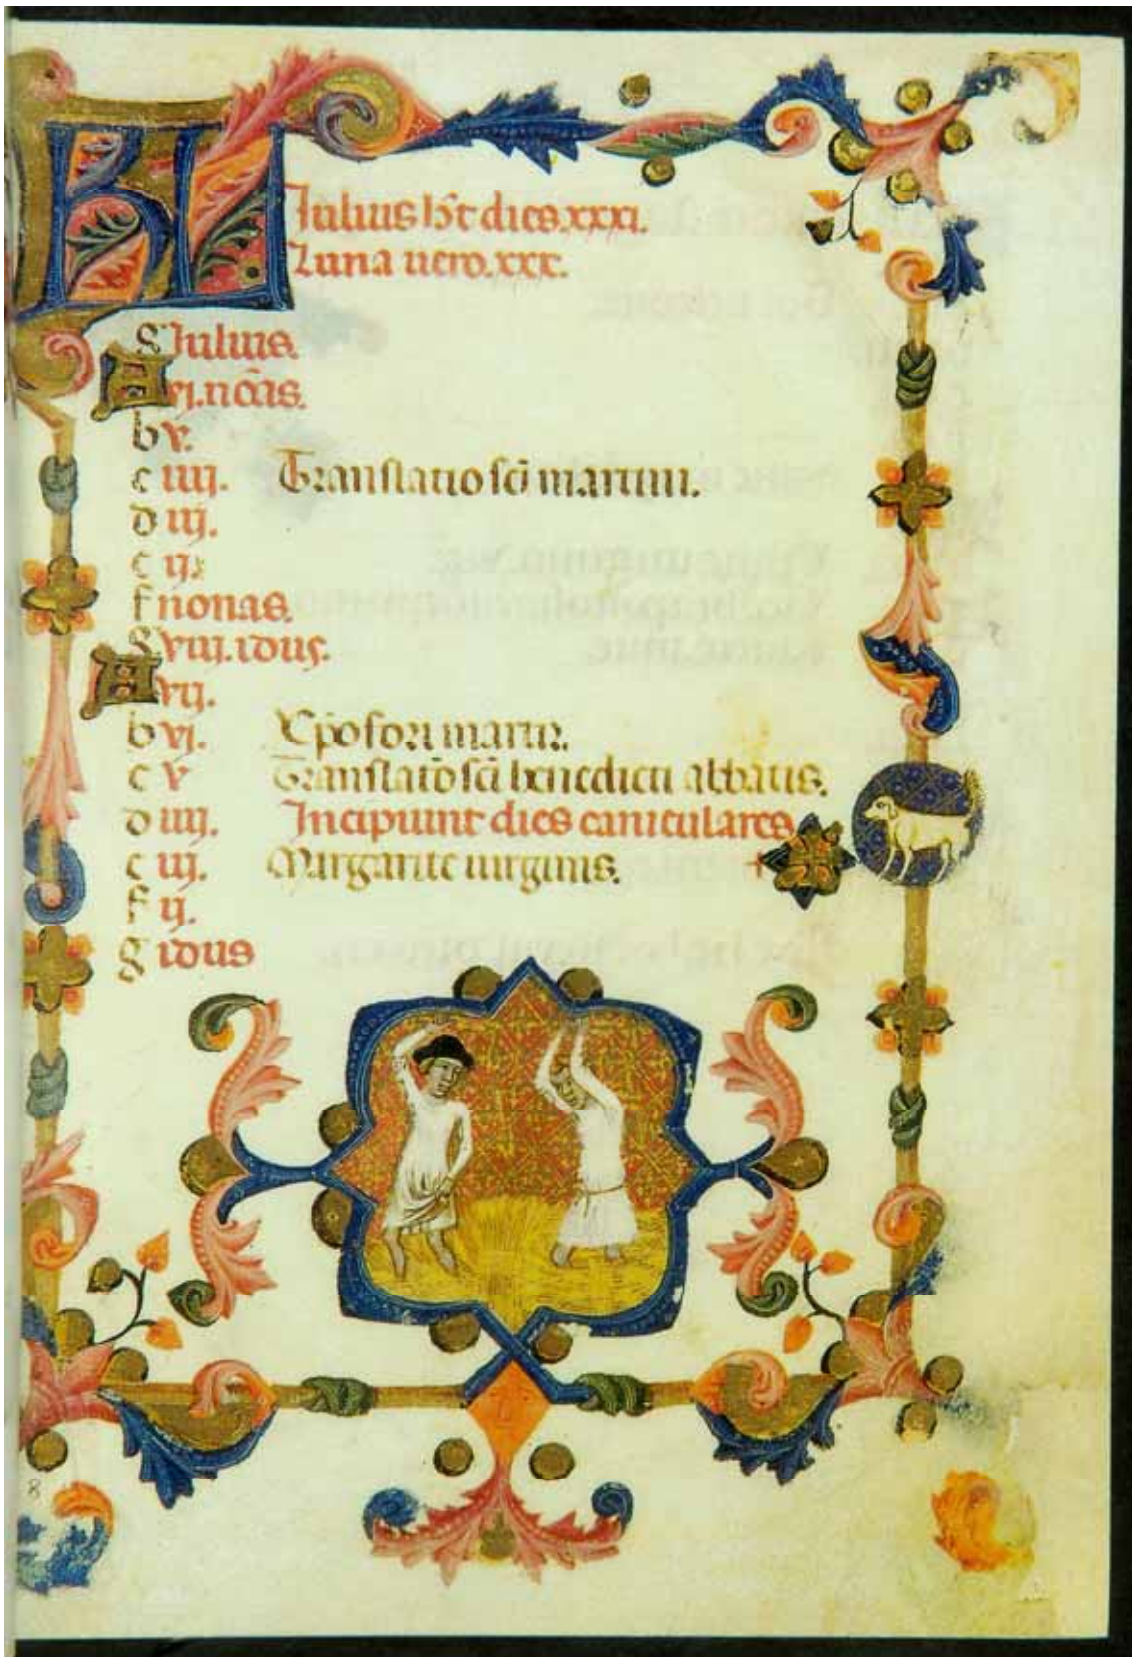 KL Iulius h̄t dies.xxxi.
Luna uero.xxx.
g Iulius.
A vi.nōas.
b v.
c iiij. Translatio sc̄i martini.
d iij.
e ij.
f nonas.
g viij.idus.
A vij.
b vj. Xp̄ofori martir.
c v Translatō sc̄i benedicti abbatis.
d iiij. Incipiunt dies caniculares
e iij. Margarite uirginis.
f ij.
g idus
8